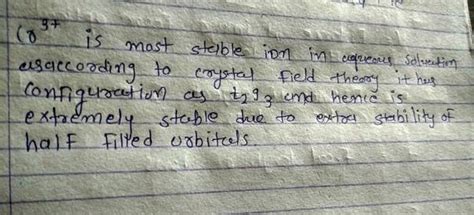 Co3+ is most stable ion in aqueous solution
as according to crystal field theory it has
configuration as t2g3 and hence is
extremely stable due to extra stability of
half filled orbitals.